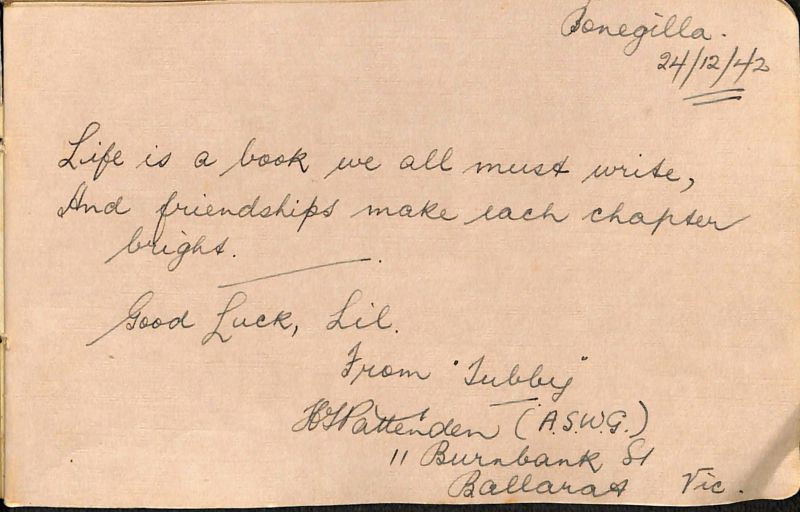 Bonegilla.
24/12/42
Life is a book we all must write,
And friendships make each chapter
bright.
Good Luck, Lil.
From "Tubby"
Pattenden (A.S.W.G.)
11 Burnbank St
Ballarat Vic.